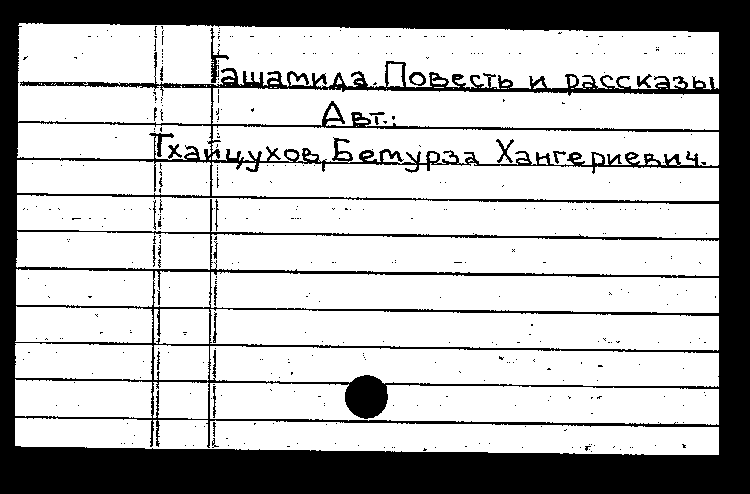 Гашамида. Повесть и рассказы
Авт.:
Тхайцухов, Бемурза Хангериевич.